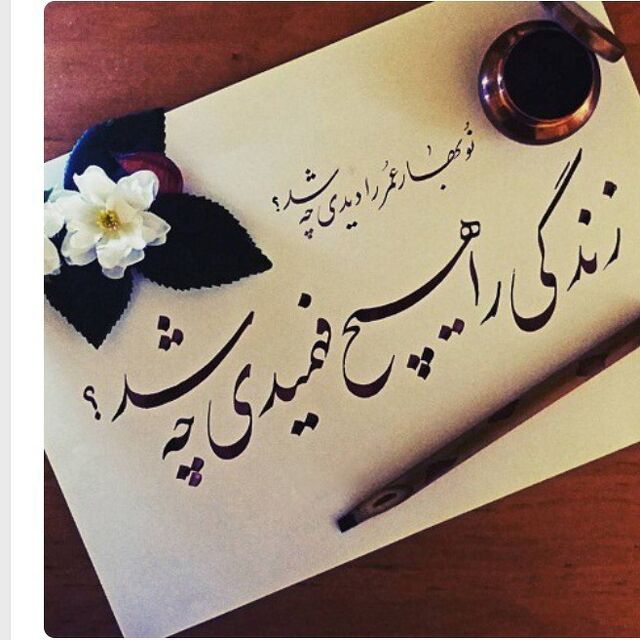 نوبهار عمر را دیدی چه شد؟
زندگی را هیچ فهمیدی چه شد؟